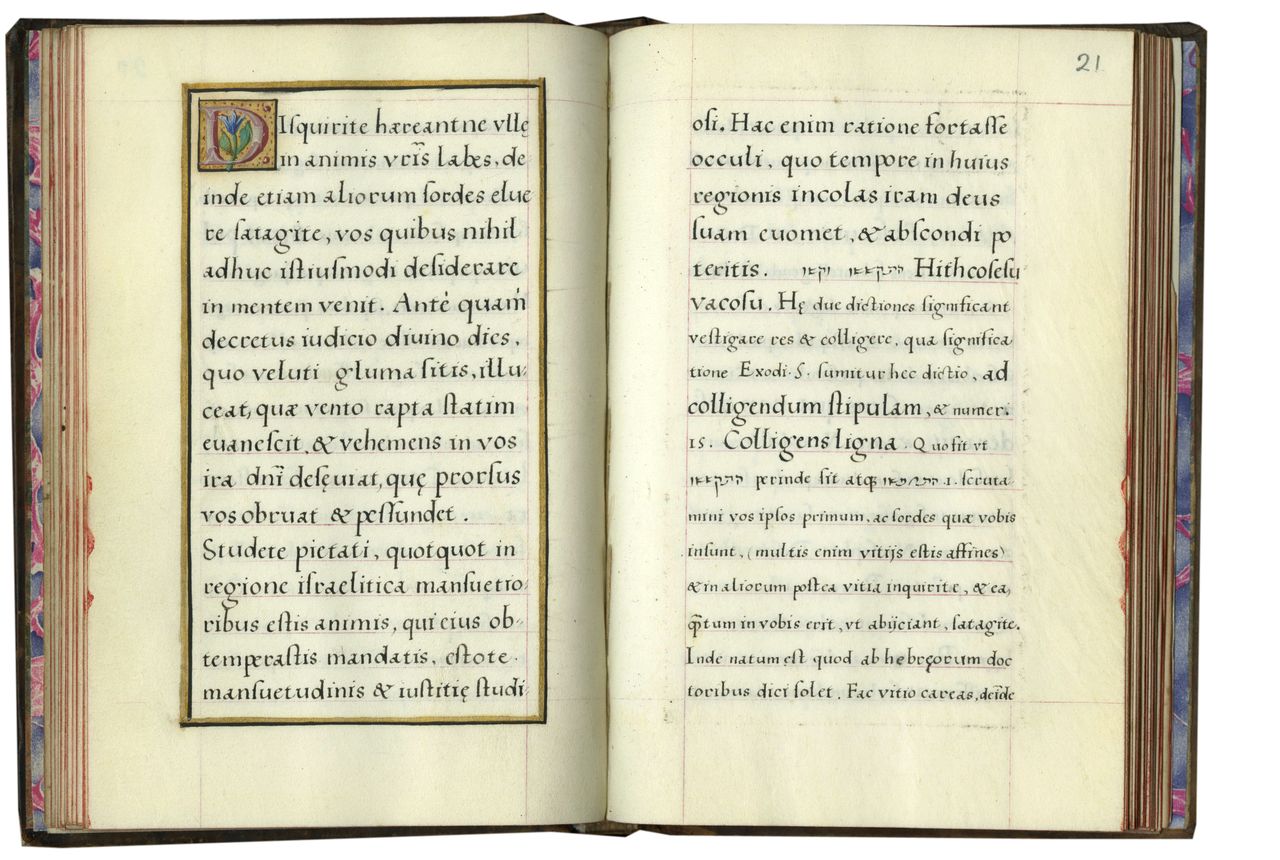 DIsquirite hæreantne vllę
in animis vr̃is labes, de-
inde etiam aliorum ſordes elue
re ſatagite, vos quibus nihil
adhuc iſtiuſmodi deſiderare
in mentem venit. Antè quam
decretus iudicio diuino dies,
quo veluti gluma ſitis, illu-
ceat, quæ vento rapta ſtatim
euaneſcit, & vehemens in vos
ira dnĩ deſęuiat, quę prorſus
vos obruat & peſſundet.
Studete pietati, quotquot in
regione iſraelitica manſuetio-
ribus eſtis animis, qui eius ob-
temperaſtis mandatis, eſtote
manſuetudinis & iuſtitię ſtudi-
21
oſi. Hac enim ratione fortaſſe
occuli, quo tempore in huius
regionis incolas iram deus
ſuam euomet, & abſcondi po
teritis. Hithcoſeſu
vacoſu. Hę due dictiones ſignificant
veſtigare res & colligere, qua ſignifica-
tione Exodi. 5. ſumitur hec dictio, ad
colligendum ſtipulam, & numer.
15. Colligens ligna. Quo fit vt
perinde ſit atq̃ .i. ſcruta-
mini vos ipſos primum, ac ſordes quæ vobis
inſunt, (multis enim vitijs eſtis affines)
& in aliorum poſtea vitia inquirite, & ea,
q̃tum in vobis erit, vt abijciant, ſatagite.
Inde natum eſt quod ab hebręorum doc
toribus dici ſolet. Fac vitio careas, deĩde